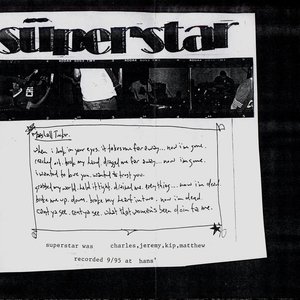 süperstar
KODAK 5063 TMY
KODAK 5063 TMY
Marshall Tucker.
when i look in your eyes. it takes me far away... now i'm gone.
reached out. took my hand. dragged me far away... now i'm gone.
i wanted to love you. wanted to trust you.
grabbed my world. held it tight. d me. everything... now i'm dead.
broke me up. down. broke my heart in two. now i'm dead.
cant ya see. cant ya see. what that woman's been doin to me.
superstar was charles,jeremy,kip,matthew
recorded 9/95 at hams'